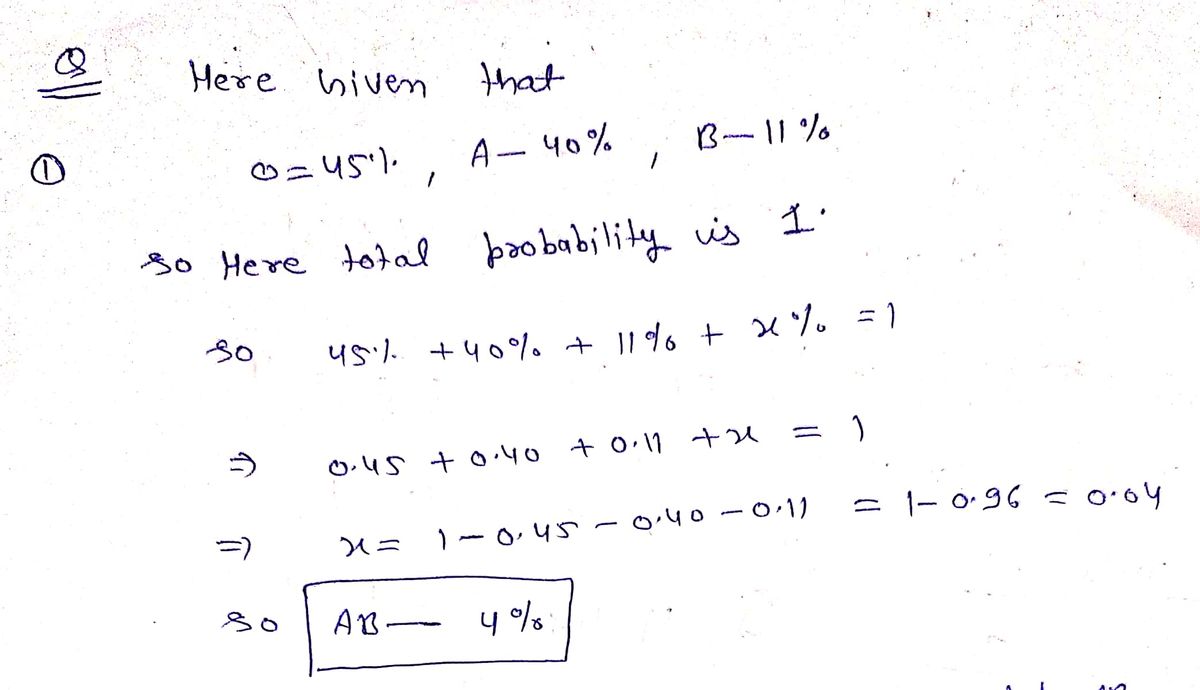 Q Here Given that
① O=45%, A— 40%, B—11%
So Here total probability is 1.
So 45% + 40% + 11% + x% = 1
⇒ 0.45 + 0.40 + 0.11 + x = 1
⇒ x = 1 - 0.45 - 0.40 - 0.11 = 1 - 0.96 = 0.04
So AB — 4%